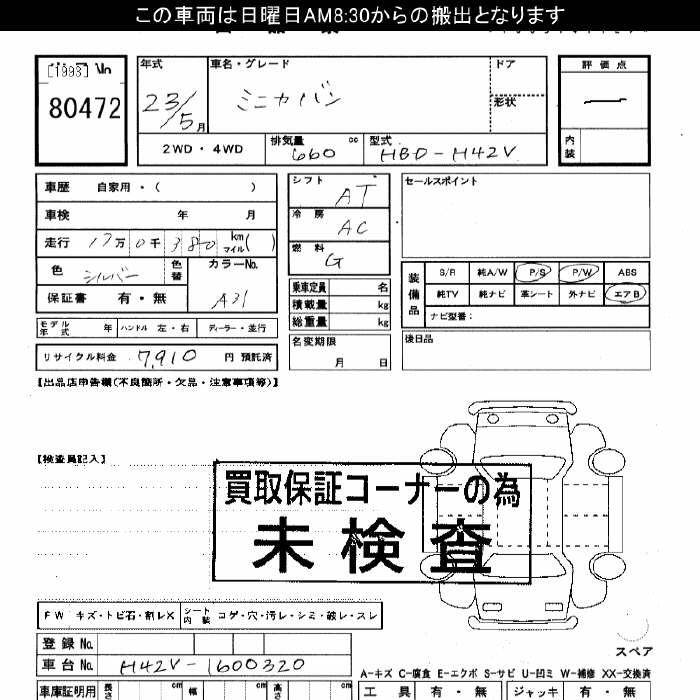 この車両は日曜日AM8:30からの搬出となります
[1993] No
80472
年式
23/5月
車名・グレード
ミニカバン
ドア
形状
評価点
内装
2WD・4WD
排気量 660 cc
型式 HBD-H42V
車歴 自家用・( )
車検 年 月
走行 17万 0千 380 km マイル( )
色 シルバー
色替
カラーNo. A31
保証書 有・無
モデル年式 年 ハンドル 左・右 ディーラー・並行
リサイクル料金 7,910 円 預託済
シフト AT
冷房 AC
燃料 G
乗車定員 名
積載量 kg
総重量 kg
名変期限
月 日
セールスポイント
装備品
S/R 純A/W P/S P/W ABS
純TV 純ナビ 革シート 外ナビ エアB
ナビ型番:
後日品
【出品店申告欄(不良箇所・欠品・注意事項等)】
【検査員記入】
買取保証コーナーの為
未検査
FW キズ・トビ石・割レX シート内装 コゲ・穴・汚レ・シミ・破レ・スレ
登録No.
車台No. H42V-1600320
スペア
A-キズ C-腐食 E-エクボ S-サビ U-凹ミ W-補修 XX-交換済
車庫証明用 長さ cm 幅 cm 高さ cm
工具 有・無 ジャッキ 有・無